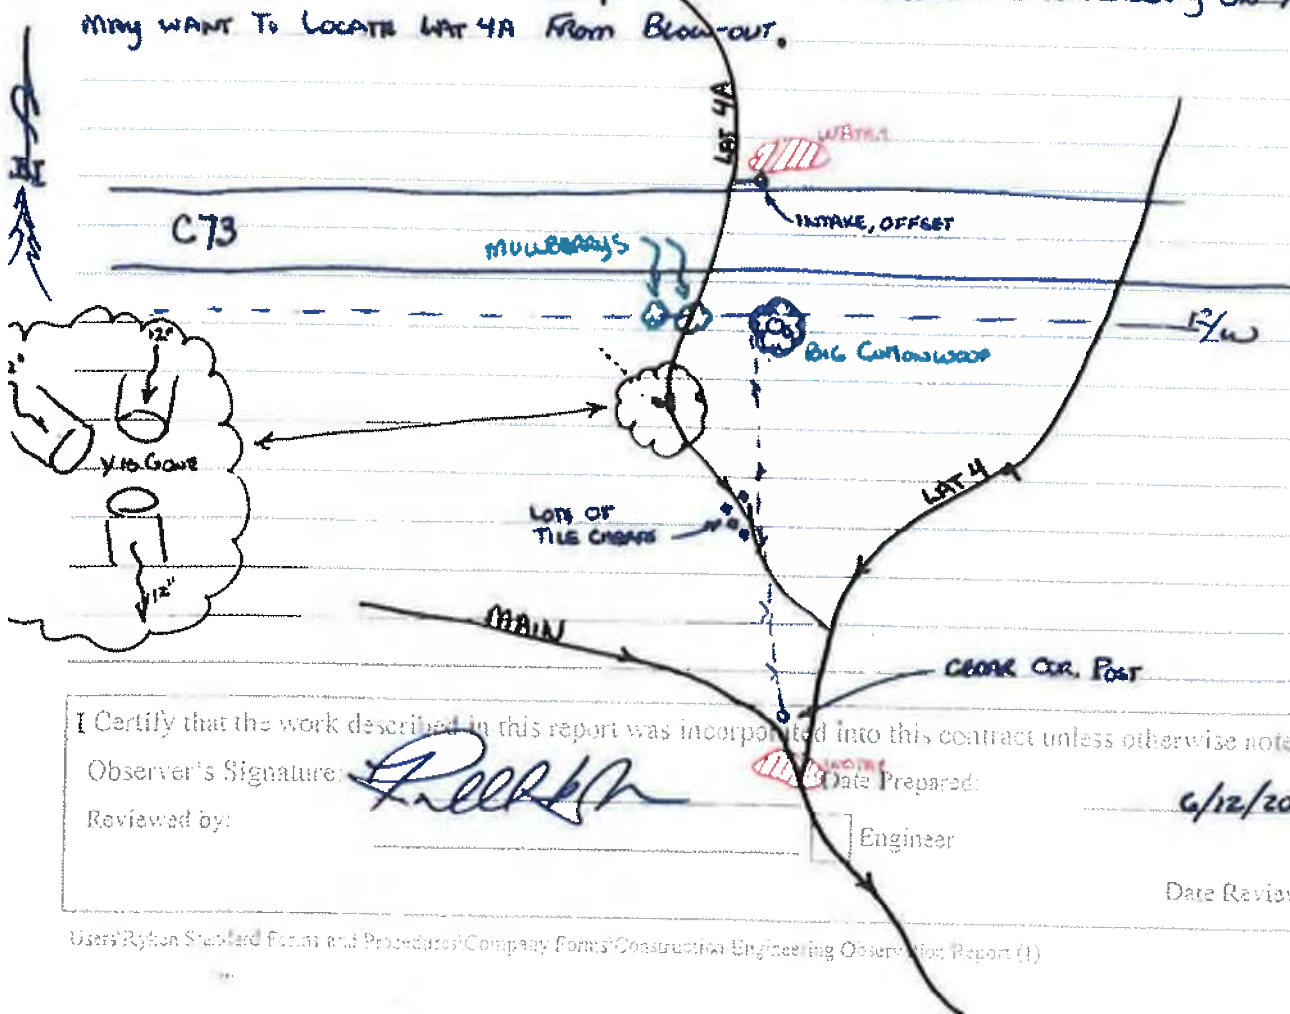 MAY WANT TO LOCATE LAT 4A FROM BLOW-OUT.
LAT 4A
WATER
N
INTAKE, OFFSET
C73
MULLBERRYS
R/W
BIG COTTONWOOD
12"
2"
Y IS GONE
LAT 4
LOTS OF
TILE CHEARS
12"
MAIN
CEDAR COR. POST
I Certify that the work described in this report was incorporated into this contract unless otherwise note
Observer's Signature:
WATER
Date Prepared:
6/12/20
Reviewed by:
Engineer
Date Review
Users\Ryken Standard Forms and Procedures\Company Forms\Construction Engineering Observation Report (1)